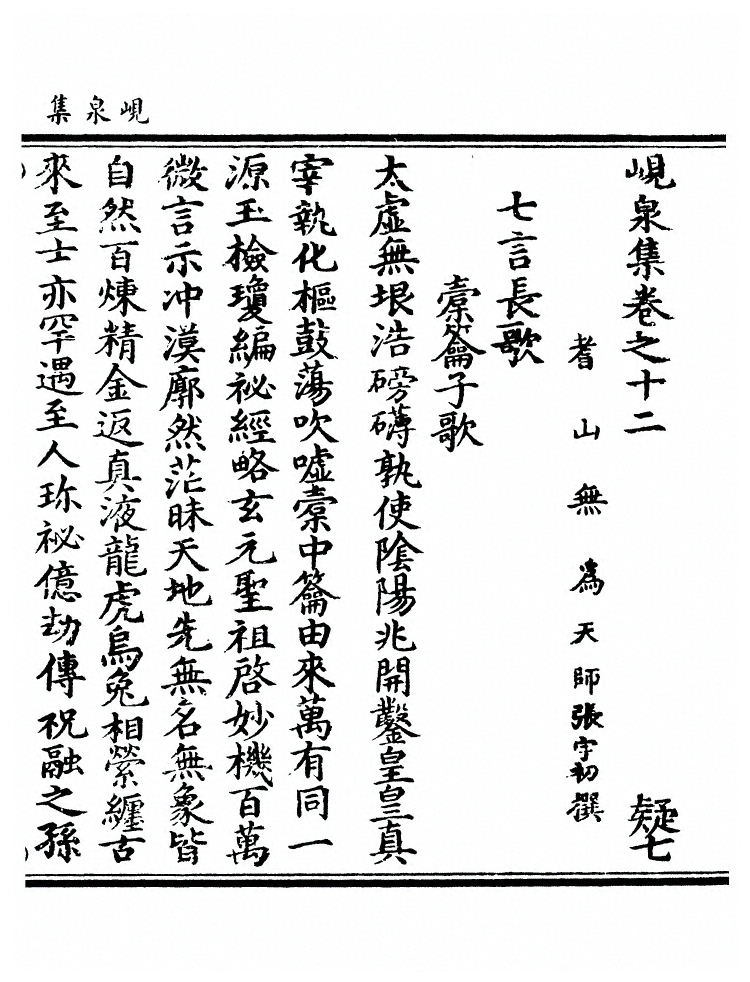 峴泉集
峴泉集卷之十二 疑七
耆山無為天師張宇初撰
七言長歌
橐籥子歌
太虛無垠浩磅礴孰使陰陽兆開鑿皇皇真
宰執化樞鼓蕩吹噓橐中籥由來萬有同一
源玉檢瓊編祕經略玄元聖祖啓妙機百萬
微言示冲漠廓然茫昧天地先無名無象皆
自然百煉精金返真液龍虎烏兔相縈纏古
來至士亦罕遇至人珍祕億劫傳祝融之孫